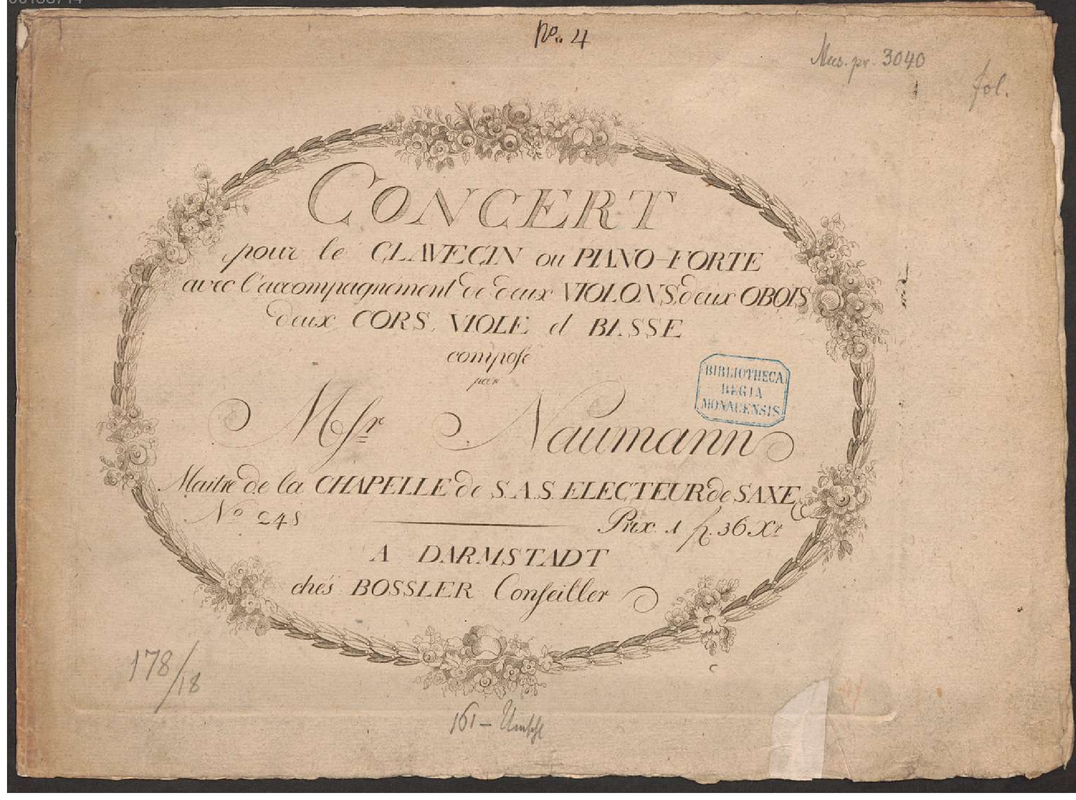 No. 4
Mus. pr. 3040
fol.
CONCERT
pour le CLAVECIN ou PIANO-FORTE
avec l'accompagnement de deux VIOLONS, deux OBOIS
deux CORS, VIOLE et BASSE
composé
par
Msr Naumann
BIBLIOTHECA
REGIA
MONACENSIS
Maitre de la CHAPELLE de S.A.S. ELECTEUR de SAXE
No 248
Prix 1 fl. 36 Xr
A DARMSTADT
chés BOSSLER Conseiller
178/18
161 – Umschl